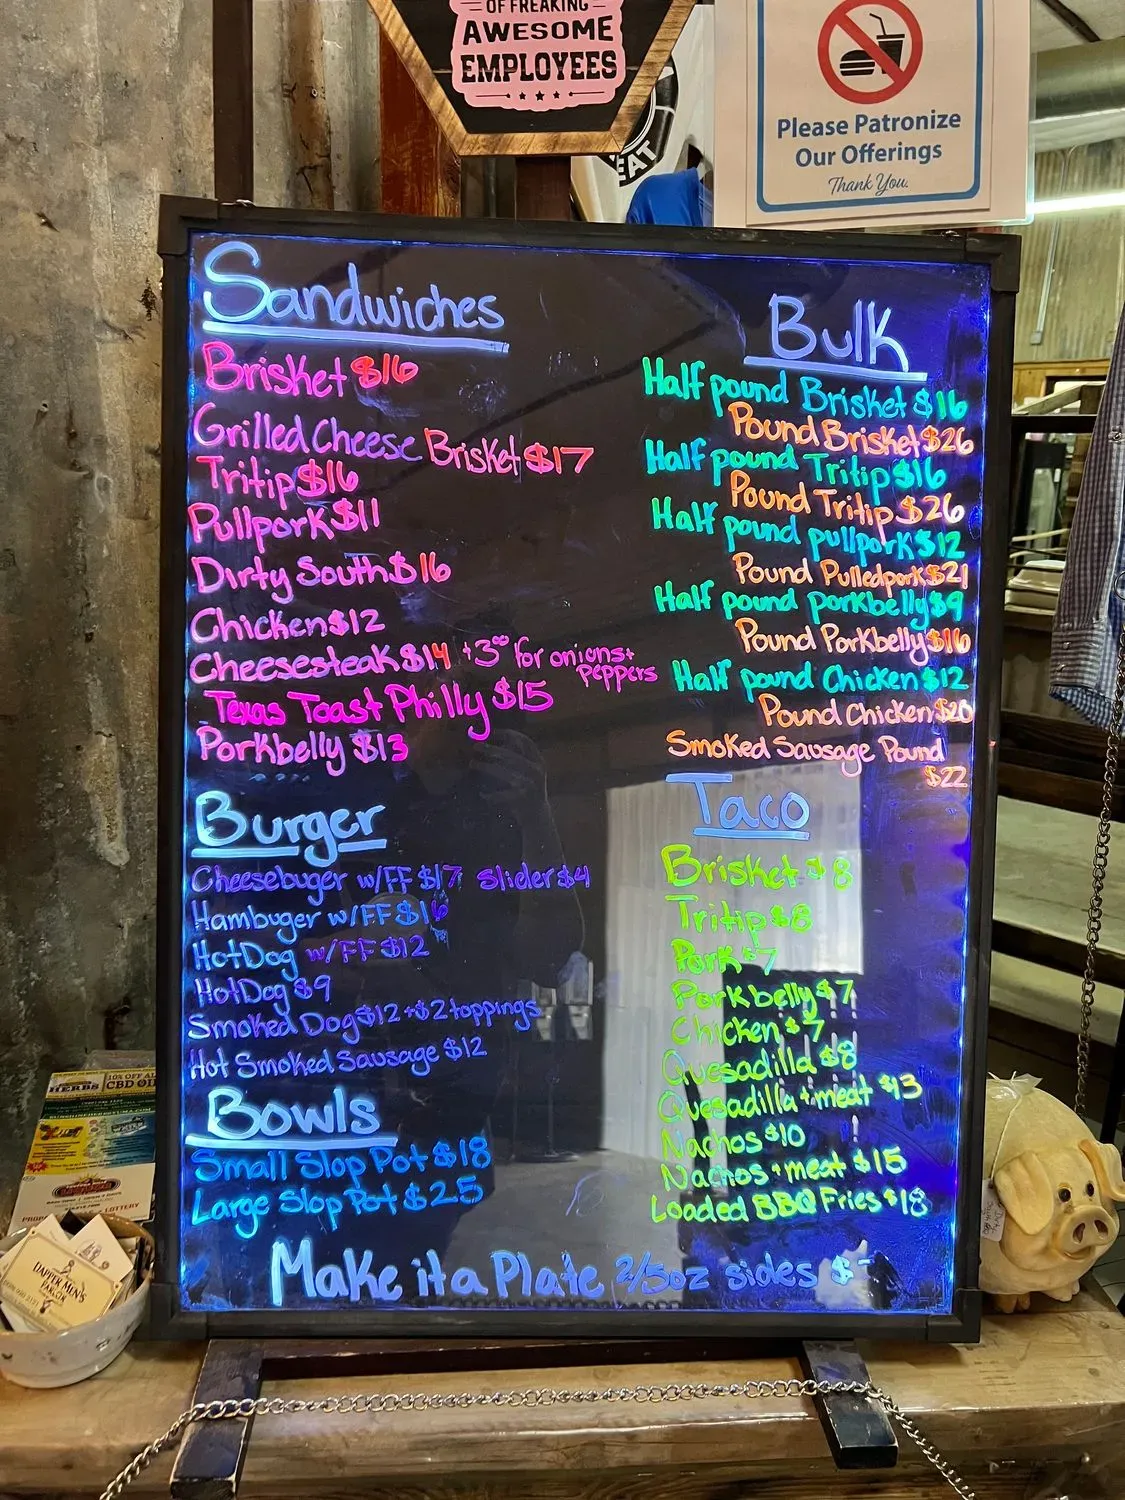 OF FREAKING
AWESOME
EMPLOYEES
EAT
Please Patronize
Our Offerings
Thank You.
Sandwiches
Brisket $16
Grilled Cheese Brisket $17
Tritip $16
Pullpork $11
Dirty South $16
Chicken $12
Cheesesteak $14 +3⁰⁰ for onions+
peppers
Texas Toast Philly $15
Porkbelly $13
Burger
Cheesebuger w/FF $17 Slider $4
Hambuger w/FF $16
HotDog w/FF $12
HotDog $9
Smoked Dog $12 +$2 toppings
Hot Smoked Sausage $12
Bowls
Small Slop Pot $18
Large Slop Pot $25
Bulk
Half pound Brisket $16
Pound Brisket $26
Half pound Tritip $16
Pound Tritip $26
Half pound pullpork $12
Pound Pulledpork $21
Half pound porkbelly $9
Pound Porkbelly $16
Half pound Chicken $12
Pound Chicken $20
Smoked Sausage Pound
$22
Taco
Brisket $8
Tritip $8
Pork $7
Porkbelly $7
Chicken $7
Quesadilla $8
Quesadilla + meat $13
Nachos $10
Nachos + meat $15
Loaded BBQ Fries $18
Make it a Plate 2/5oz sides $
HERBS
10% OFF
CBD OIL
LOTTERY
DAPPER MEN'S